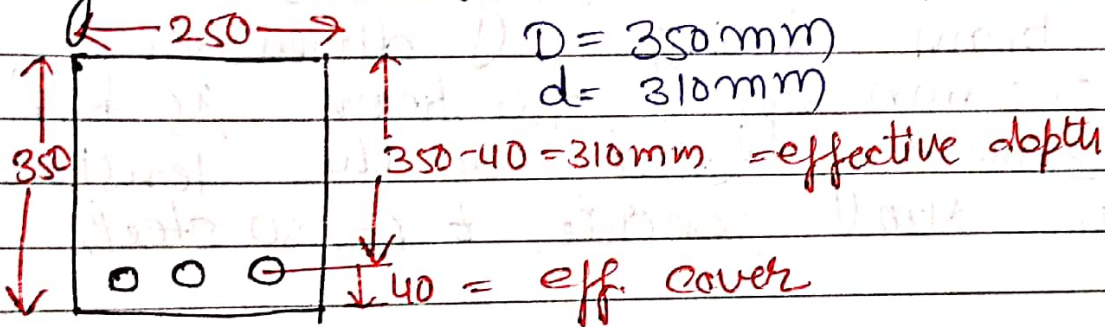 250
D = 350mm
d = 310mm
350
350-40=310mm =effective dopth
40 = eff. cover